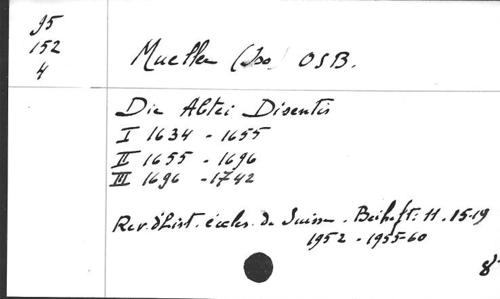 95
152
4
Mueller (Iso) OSB.
Die Abtei Disentis
I 1634 - 1655
II 1655 - 1696
III 1696 - 1742
Rev. d'Hist. éccles. de Suisse. Beiheft: 11. 15-19
1952 - 1955-60
8°